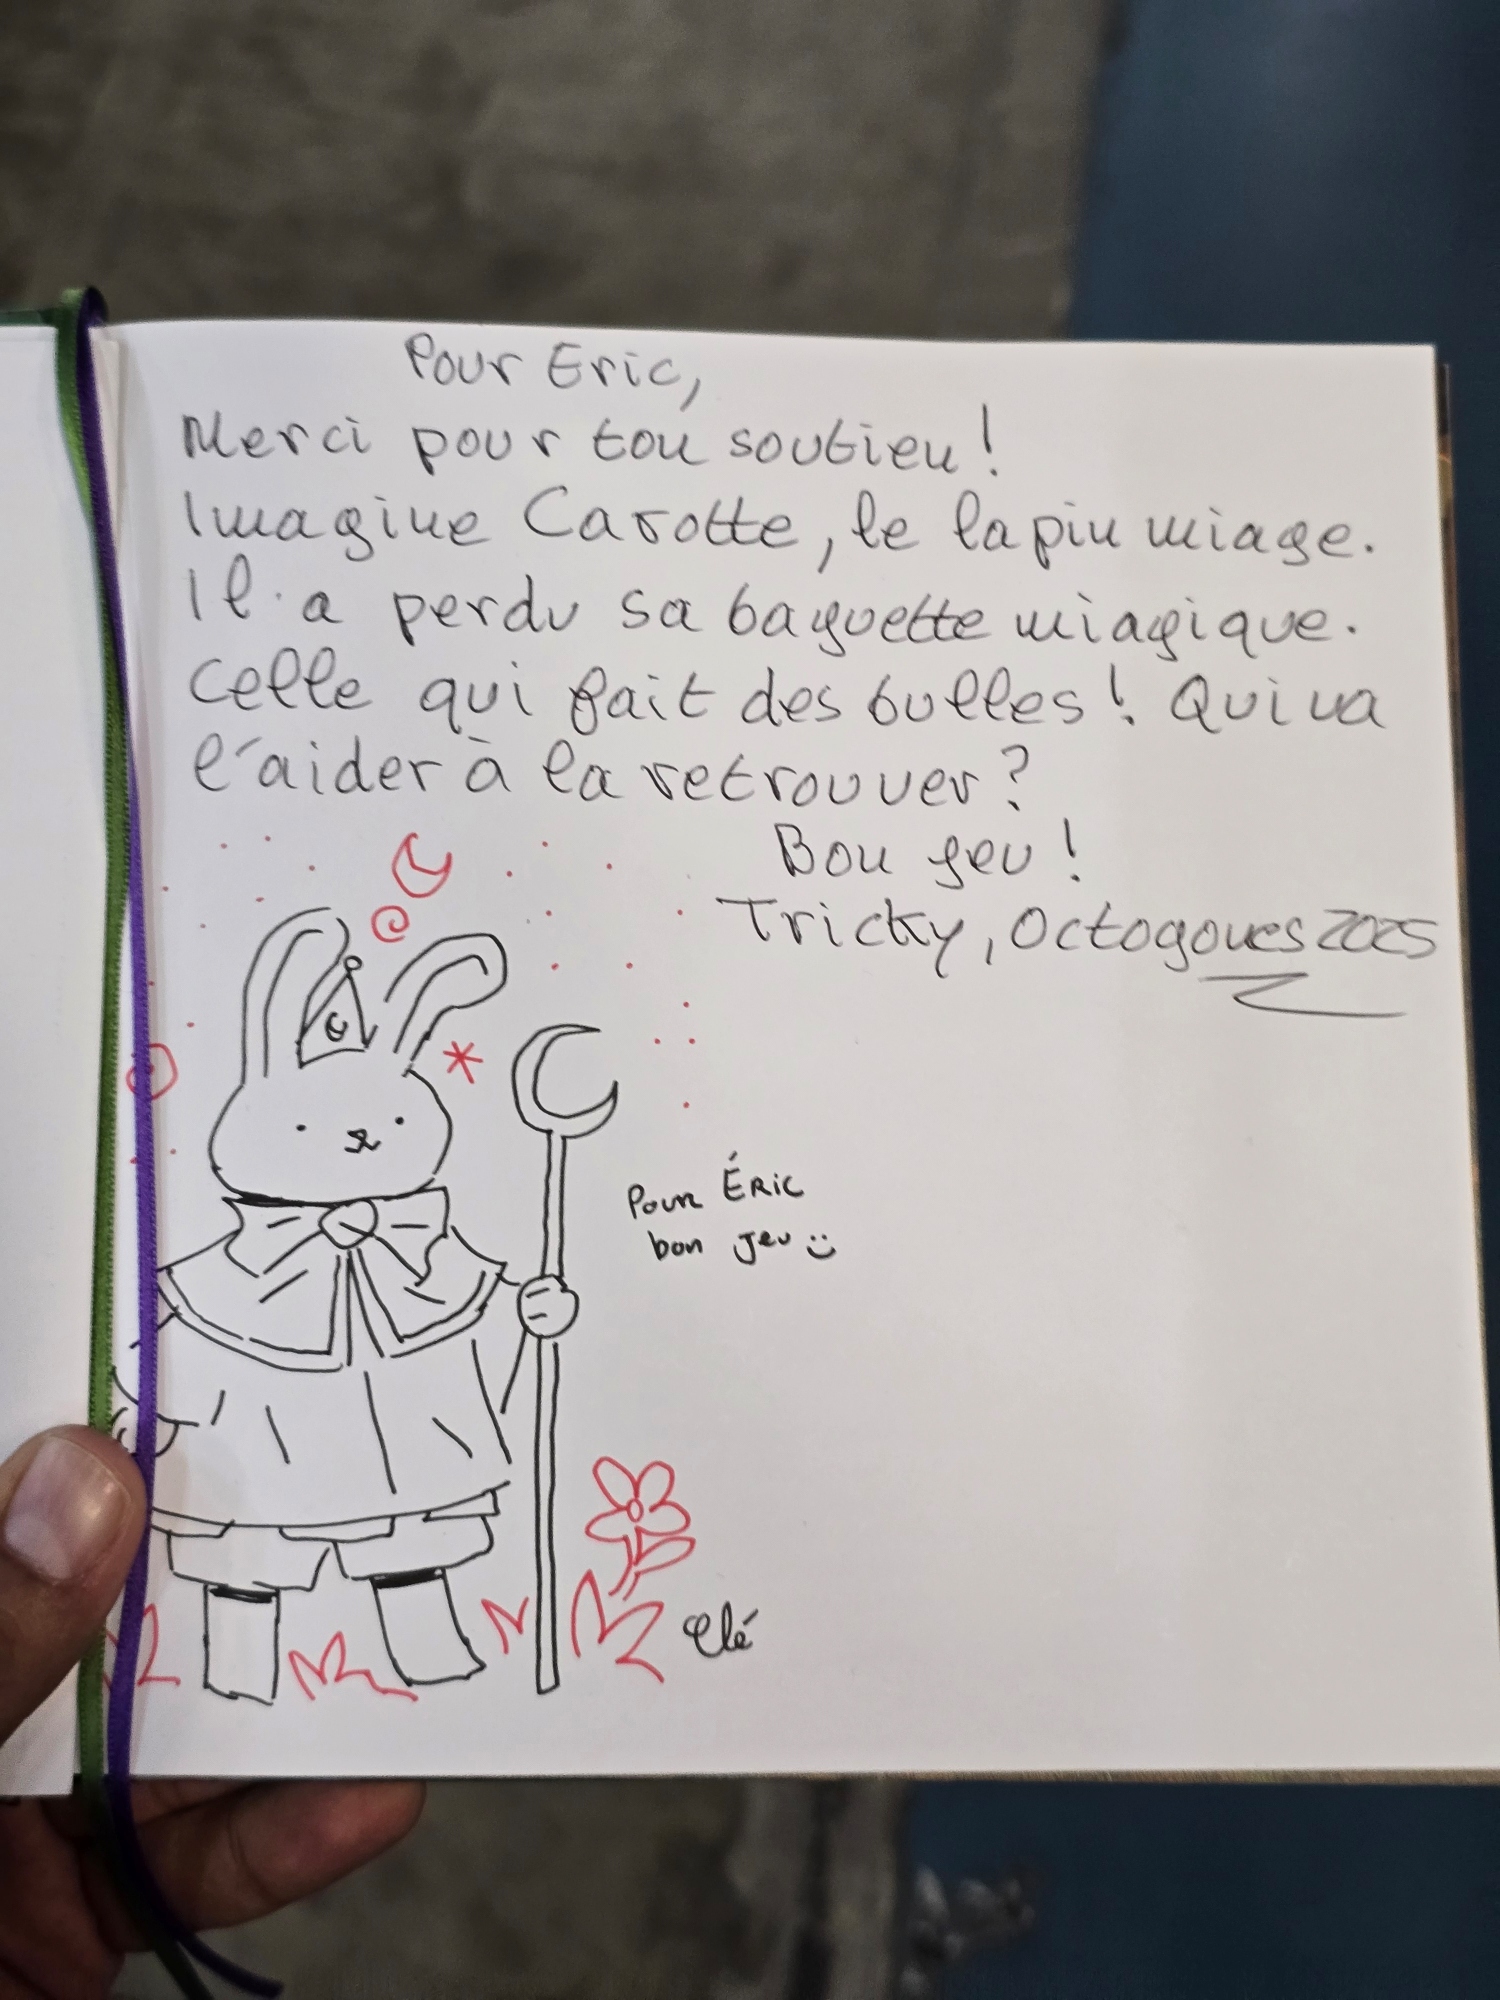 Pour Eric,
Merci pour ton soutien !
Imagine Carotte, le lapin miage.
Il a perdu sa baguette miagique.
Celle qui fait des bulles ! Qui va
l'aider à la retrouver ?
Bon jeu !
Tricky, Octogones 2025
Pour Éric
bon jeu
Clé